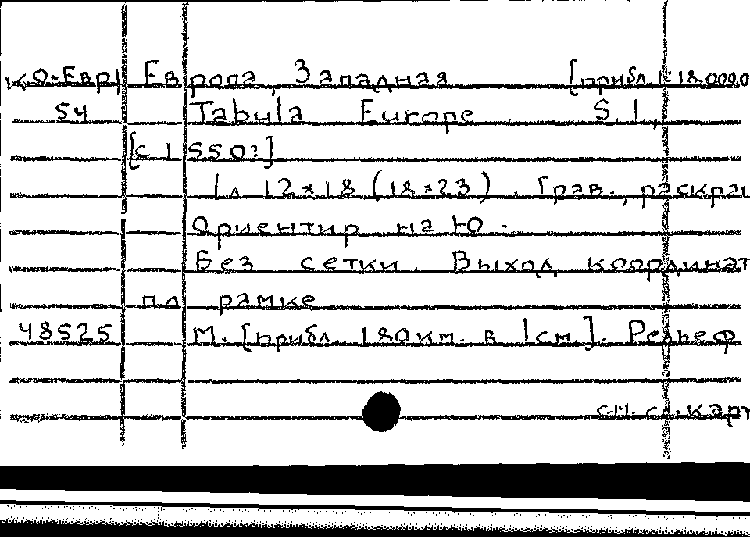 КО-Евр Европа, Западная [прибл. 1:18.000.0
54 Tabula Europe S.l.,
[с 1550?]
1 л 12×18 (18×23). Грав., раскраш
Ориентир на Ю.
Без сетки. Выход координат
по рамке
48525 М. [прибл. 180 км. в 1 см.]. Рельеф
см. сл. карт